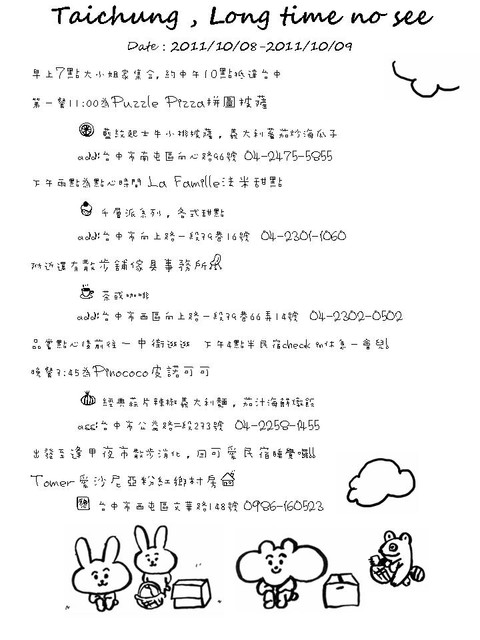 Taichung , Long time no see
Date : 2011/10/08-2011/10/09
早上7點大小姐家集合, 約中午10點抵達台中
第一餐11:00為Puzzle Pizza拼圖披薩
藍紋起士牛小排披薩，義大利蕃茄炒海瓜子
add:台中市南屯區向心路96號 04-2475-5855
下午兩點為點心時間 La Famille法米甜點
千層派系列，各式甜點
add:台中市向上路一段79巷16號 04-2301-1060
附近還有散步舖傢具事務所
茶或咖啡
add:台中市西區向上路一段79巷66弄14號 04-2302-0502
品嘗點心後前往一中街逛逛 下午4點半民宿check in休息一會兒!
晚餐7:45為Pinococo皮諾可可
經典蒜片辣椒義大利麵，茄汁海鮮燉飯
ass:台中市公益路二段273號 04-2258-9455
出發至逢甲夜市散步消化，回可愛民宿睡覺囉!!
Tomer愛沙尼亞粉紅鄉村房
台中市西屯區文華路148號 0986-160523